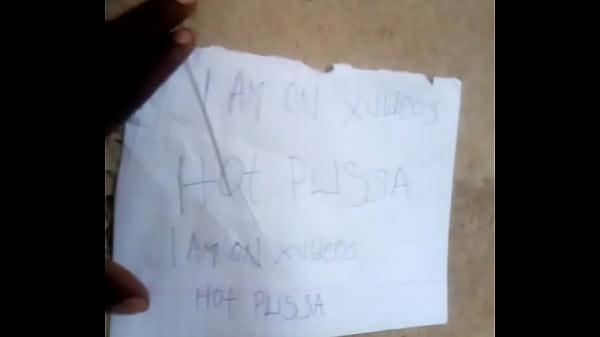 I AM ON xvideos
HOt PUSSA
I AM ON xvideos
HOt PUSSA